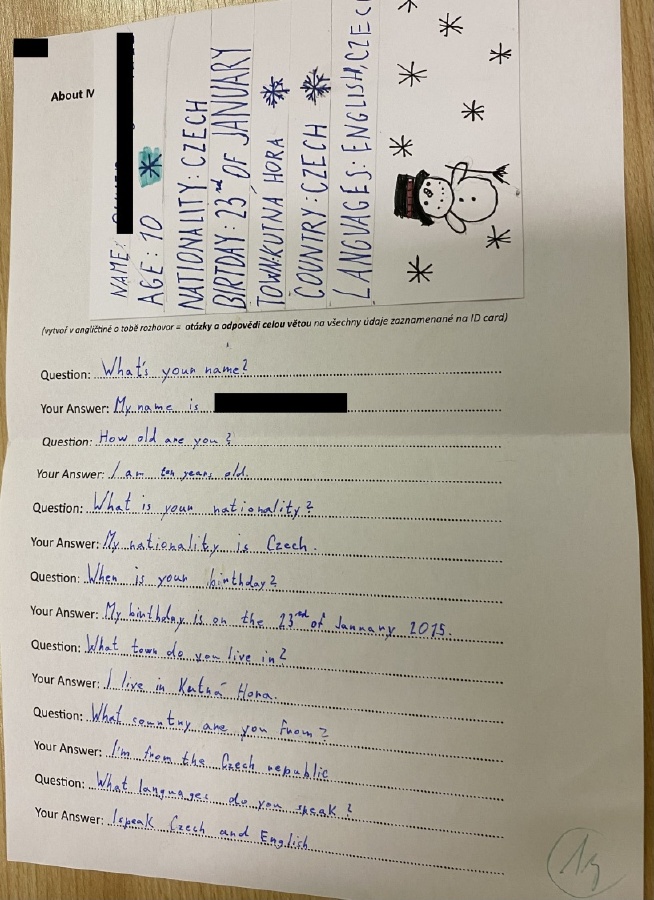 About M
NAME:
AGE: 10
NATIONALITY: CZECH
BIRTDAY: 23rd OF JANUARY
TOWN: KUTNA HORA
COUNTRY: CZECH
LANGUAGES: ENGLISH, CZEC
(vytvoř v angličtině o tobě rozhovor = otázky a odpovědi celou větou na všechny údaje zaznamenané na ID card)
Question: What's your name?
Your Answer: My name is
Question: How old are you?
Your Answer: I am ten years old.
Question: What is your nationality?
Your Answer: My nationality is Czech.
Question: When is your birthday?
Your Answer: My birthday is on the 23rd of January 2015.
Question: What town do you live in?
Your Answer: I live in Kutná Hora.
Question: What country are you from?
Your Answer: I'm from the Czech republic
Question: What languages do you speak?
Your Answer: I speak Czech and English